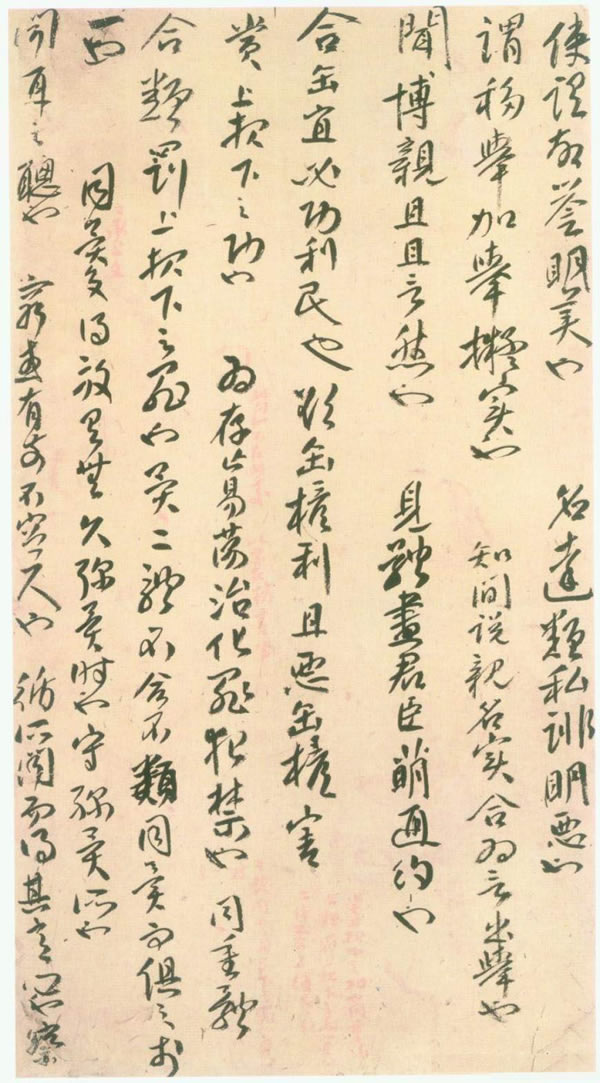 使謂故譽明美也 名達類私誹明惡也
謂移舉加舉擬實也 知聞說親名實合為言出舉也
聞博親且且言然也 見體盡君臣萌通約也
合缶宜必功利民也 欲缶權利且惡缶權害
賞上報下之功也 為存亡易蕩治化罪犯禁也 同重體
合類罰上報下之罪也異二體不合不類同異而俱之於
一也 同異交得放有無久彌異時也守彌異所也
聞耳之聰也 窮或有前不容尺也 循所聞而得其意心也察